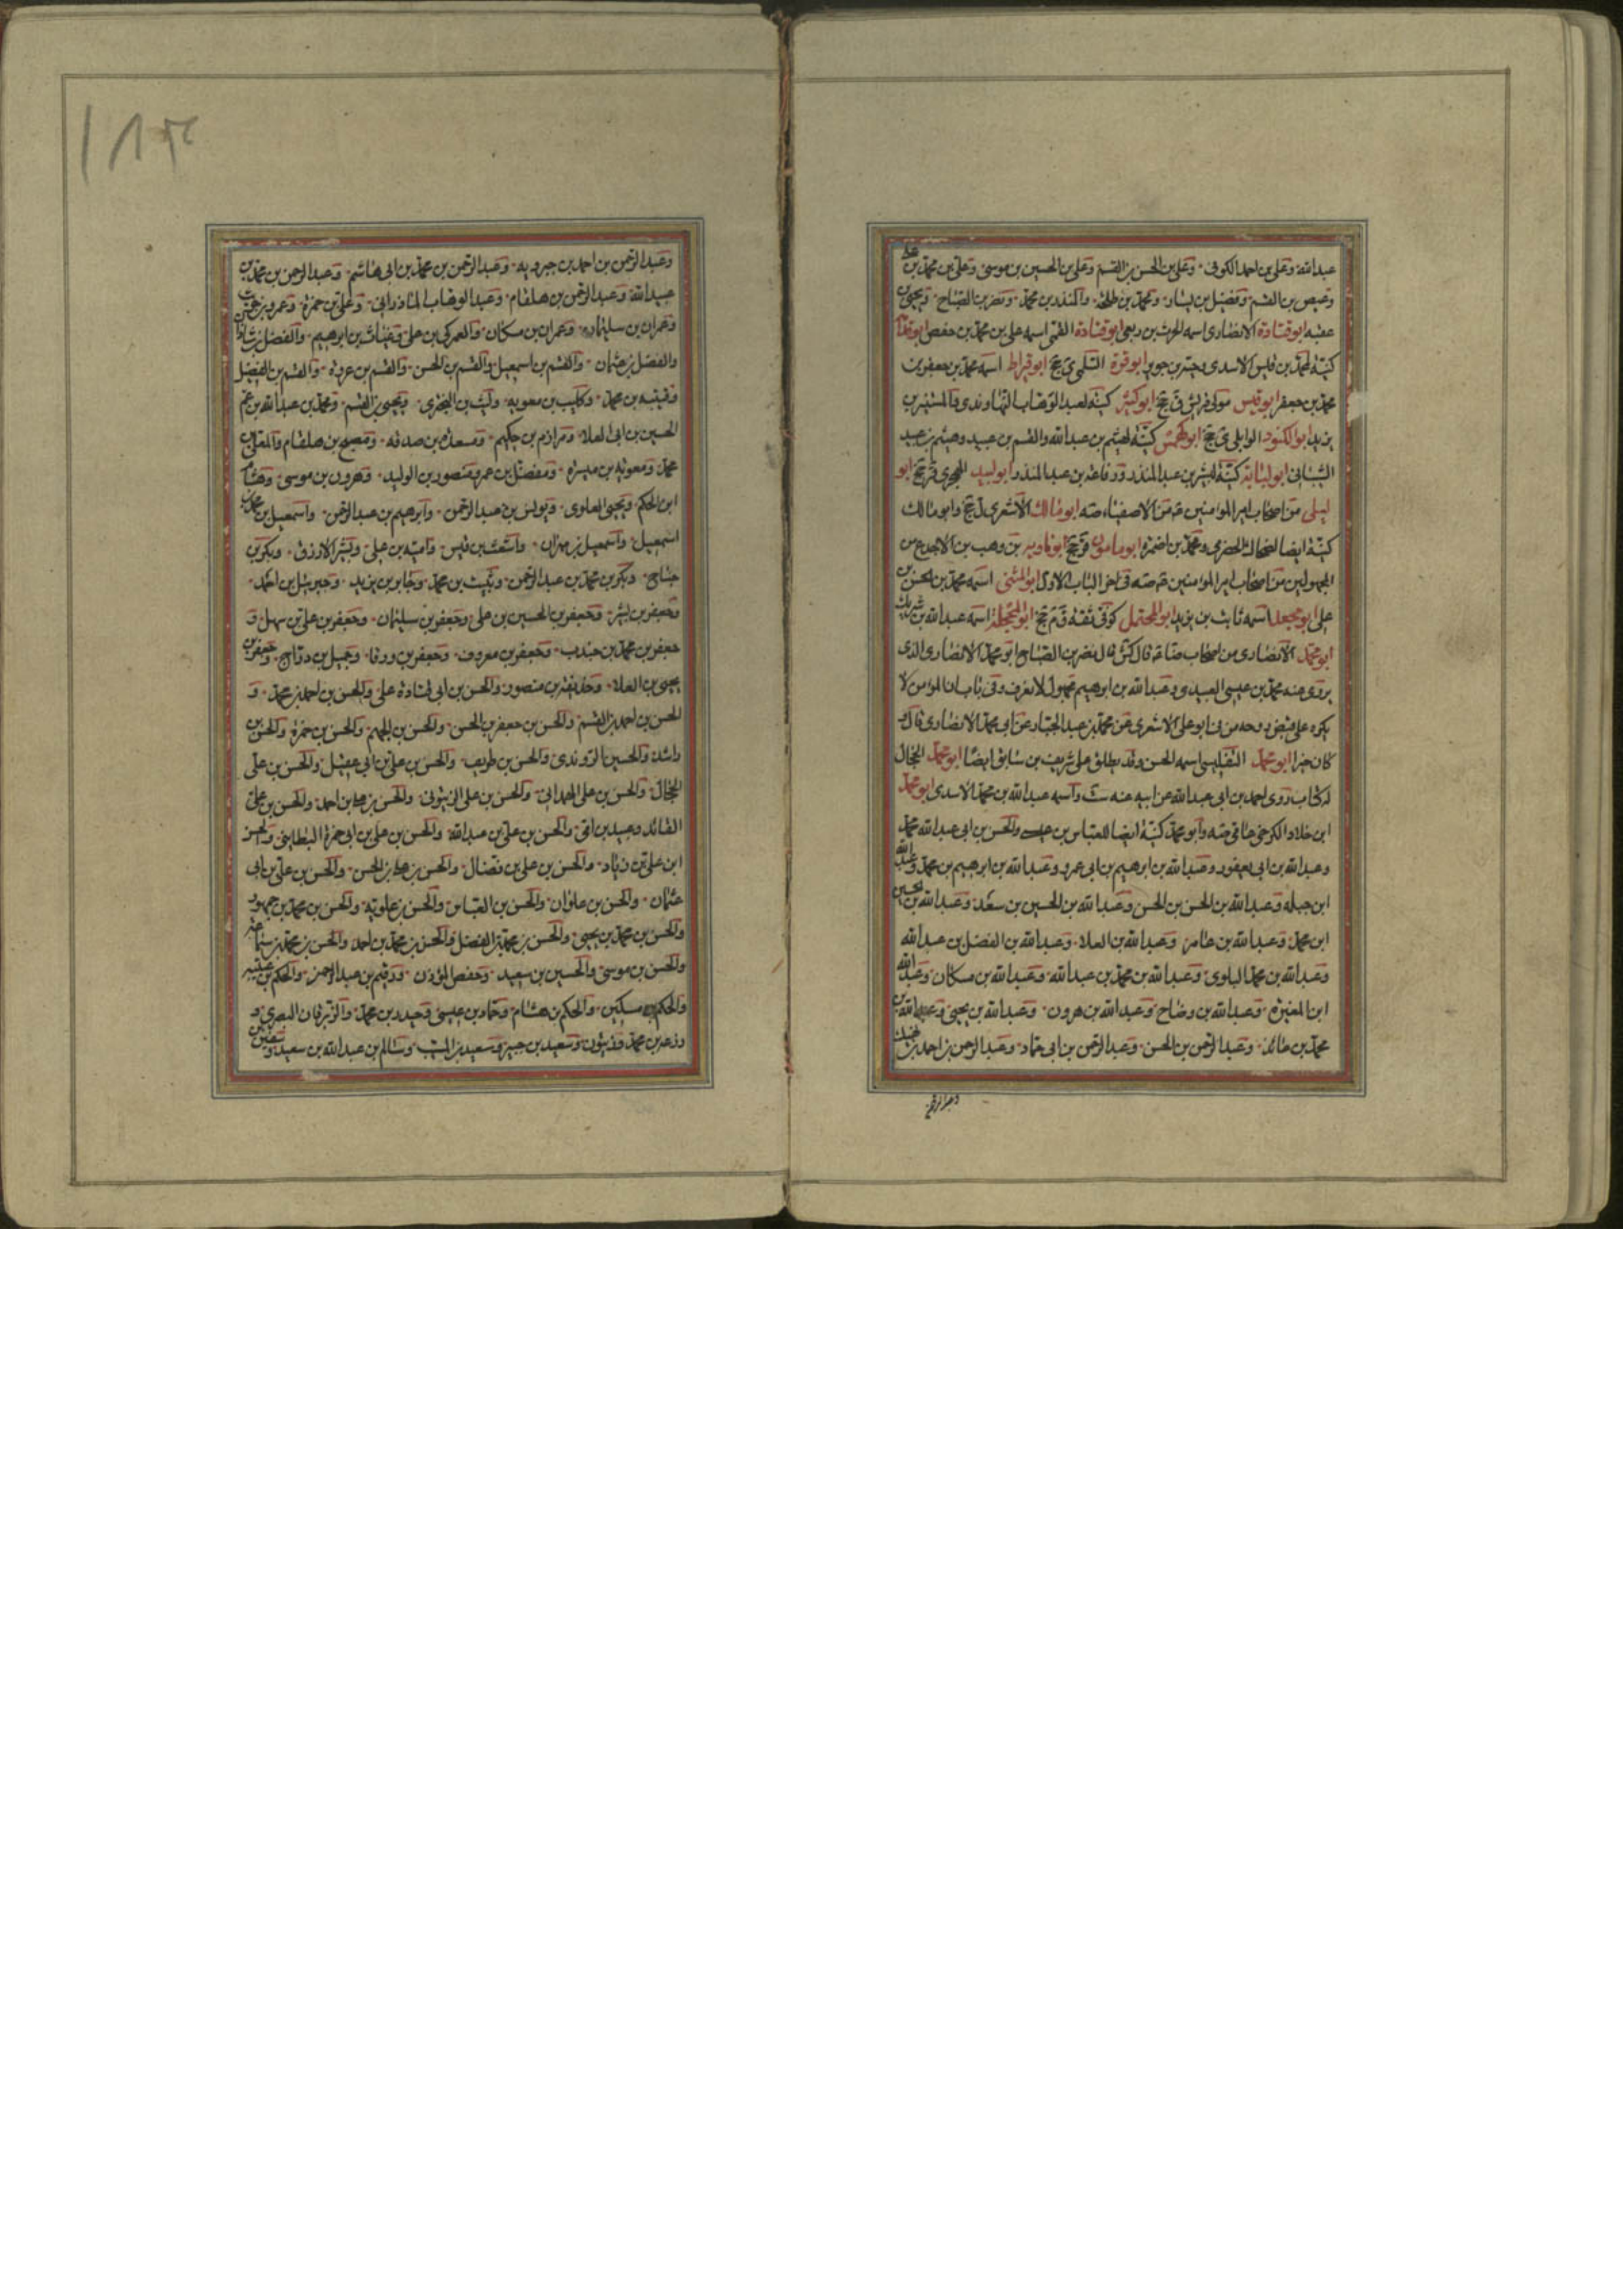 عبدالله وعلى بن احمد الكوفى وعلى بن الحسن بن القسم وعلى بن الحسين بن موسى وعلى بن محمد بن على
وعيص بن القسم وفضيل بن يسار ومحمد بن طلحة والمنذر بن محمد ونصر بن الصباح ويحيى بن
عقبه ابوقتادة الانصارى اسمه الحرث بن ربعى ابوقتادة القمى اسمه على بن محمد بن حفص
كنية لمحمد بن قيس الاسدى ابوقرة السلمى ى جخ ابوقيراط اسمه محمد بن جعفر بن
محمد بن جعفر ابوقيس مولى قريش جخ ابوكثير كنية لعبد الوهاب النهاوندى والمستنير بن
يزيد ابوالكنود الوايلى ى جخ ابوكهمس كنية لهيثم بن عبدالله والقسم بن عبيد وهيثم بن عبيد
الشيبانى ابولبابة كنية لبشير بن عبد المنذر ورفاعة بن عبد المنذر ابولبيد الهجرى جخ ابو
ليلى من اصحاب امير المؤمنين من الاصفياء صه ابومالك الاشعرى ل جخ وابومالك
كنية ايضا لضحاك الحضرمى ومحمد بن ضمرة ابومامون جخ ابوماويه بن وهب بن الاجدع من
المجهولين من اصحاب امير المؤمنين صه فى اخر الباب الاول ابوالمثنى اسمه محمد بن الحسن بن
على ابومجعد اسمه ثابت بن يزيد ابوالمحتمل كوفى ثقة جخ اسمه عبدالله بن شريك
ابومحمد الانصارى من اصحاب ضا قال كش قال نصر بن الصباح ابو محمد الانصارى الذى
يروى عنه محمد بن عيسى العبيدى وعبدالله بن ابرهيم مجهول لا يعرف وفى باب ان المؤمن لا
يكره على قبض روحه من فى ابو على الاشعرى عن محمد بن عبد الجبار عن ابى محمد الانصارى قال
كان خيرا ابومحمد التفليسى اسمه الحسن وقد يطلق على شريف بن سابق ايضا ابومحمد الخجال
له كتاب روى احمد بن ابى عبدالله عن ابيه عنه واسمه عبدالله بن محمد الاسدى ابومحمد
ابن خلاد الكرخى وابو محمد كنية ايضا للعباس بن والحسن بن ابى عبدالله محمد
وعبدالله بن ابى يعفور وعبدالله بن ابرهيم بن ابى عمرو وعبدالله بن ابرهيم بن محمد وعبدالله
ابن جبله وعبدالله بن الحسن بن الحسن وعبدالله بن الحسين بن سعد وعبدالله بن يحيى
ابن محمد وعبدالله بن عامر وعبدالله بن العلا وعبدالله بن الفضل بن عبدالله
وعبدالله بن محمد البلوى وعبدالله بن محمد بن عبدالله وعبدالله بن مسكان وعبدالله
ابن المغيرة وعبدالله بن وضاح وعبدالله بن هرون وعبدالله بن يحيى وعبدالله بن
محمد بن عائذ وعبد الرحمن بن الحسن وعبد الرحمن بن ابى حماد وعبد الرحمن بن احمد بن
وعبد الرحمن بن احمد بن جبرويه وعبد الرحمن بن محمد بن ابى هاشم وعبد الرحمن بن محمد بن
عبيدالله وعبد الرحمن بن هلقام وعبد الوهاب المادرانى وعلى بن حمزة وعمرو بن حريث
وعمران بن سليمان وعمران بن مسكان والعمركى بن على وغياث بن ابرهيم والفضل بن شاذان
والفضل بن عثمان والقسم بن اسمعيل والقسم بن الحسن والقسم بن عروة والقسم بن الفضيل
وقتيبه بن محمد وكليب بن معويه وليث بن البخترى ويحيى بن القسم ومحمد بن عبدالله بن
الحسين بن ابى العلا ومرازم بن حكيم ومسعدة بن صدقه ومصبح بن هلقام والمعلى بن
محمد ومعويه بن ميسرة ومفضل بن عمر ومنصور بن الوليد وهرون بن موسى وهشام
ابن الحكم ويحيى العلوى ويونس بن عبد الرحمن وابرهيم بن عبد الرحمن واسمعيل بن محمد بن
اسمعيل واسمعيل بن مهران واشعث بن قيس واميه بن على وبشر الازرق وبكر بن
جناح وبكر بن محمد بن عبد الرحمن وثبيت بن محمد وجابر بن يزيد وجبرئيل بن احمد
وجعفر بن بشير وجعفر بن الحسين بن على وجعفر بن سليمان وجعفر بن على بن سهل و
جعفر بن محمد بن جندب وجعفر بن معروف وجعفر بن ورقا وجميل بن دراج وجعفر بن
يحيى بن العلا وحذيفة بن منصور والحسن بن ابى قتادة على والحسن بن احمد بن محمد و
الحسن بن احمد بن القسم والحسن بن جعفر بن الحسن والحسن بن الجهم والحسن بن حمزة والحسن بن
راشد والحسين الروندى والحسن بن طريف والحسن بن على بن ابى عقيل والحسن بن على
الخجال والحسن بن على الهمدانى والحسن بن على الزيتونى والحسن بن على بن احمد والحسن بن على
القائد وعبيد بن والحسن بن على بن عبدالله والحسن بن على بن ابى حمزة البطاينى والحسن
ابن على بن زياد والحسن بن على بن فضال والحسن بن على بن الحسن والحسن بن على بن ابى
عثمان والحسن بن علوان والحسن بن العباس والحسن بن علويه والحسن بن محمد بن جمهور
والحسن بن محمد بن يحيى والحسن بن محمد بن الفضل والحسن بن محمد بن احمد والحسن بن محمد بن سماعه
والحسن بن موسى والحسين بن سعيد وحفص المؤذن ورقيم بن عبد الرحمن والحكم بن عتيبه
والحكم بن مسكين والحكم بن هشام وحماد بن عيسى وحيدر بن محمد والزبرقان البصرى و
وزرعه بن محمد وزيتون وسعيد بن جبير وسعيد بن المسيب وسالم بن عبدالله بن سعيد وسفيان بن